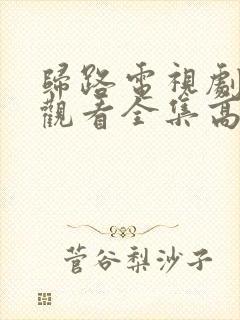 歸路電視劇
觀看全集高
菅谷梨沙子